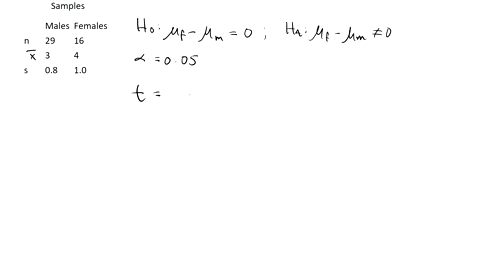 Samples
Males Females
n 29 16
x̄ 3 4
s 0.8 1.0
H₀: μ_f - μ_m = 0 ; Hₐ: μ_f - μ_m ≠ 0
α = 0.05
t =